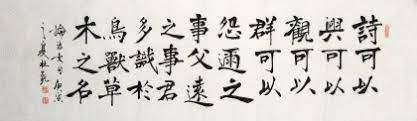 詩可以
興可以
觀可以
群可以
怨邇之
事父遠
之事君
多識於
鳥獸草
木之名